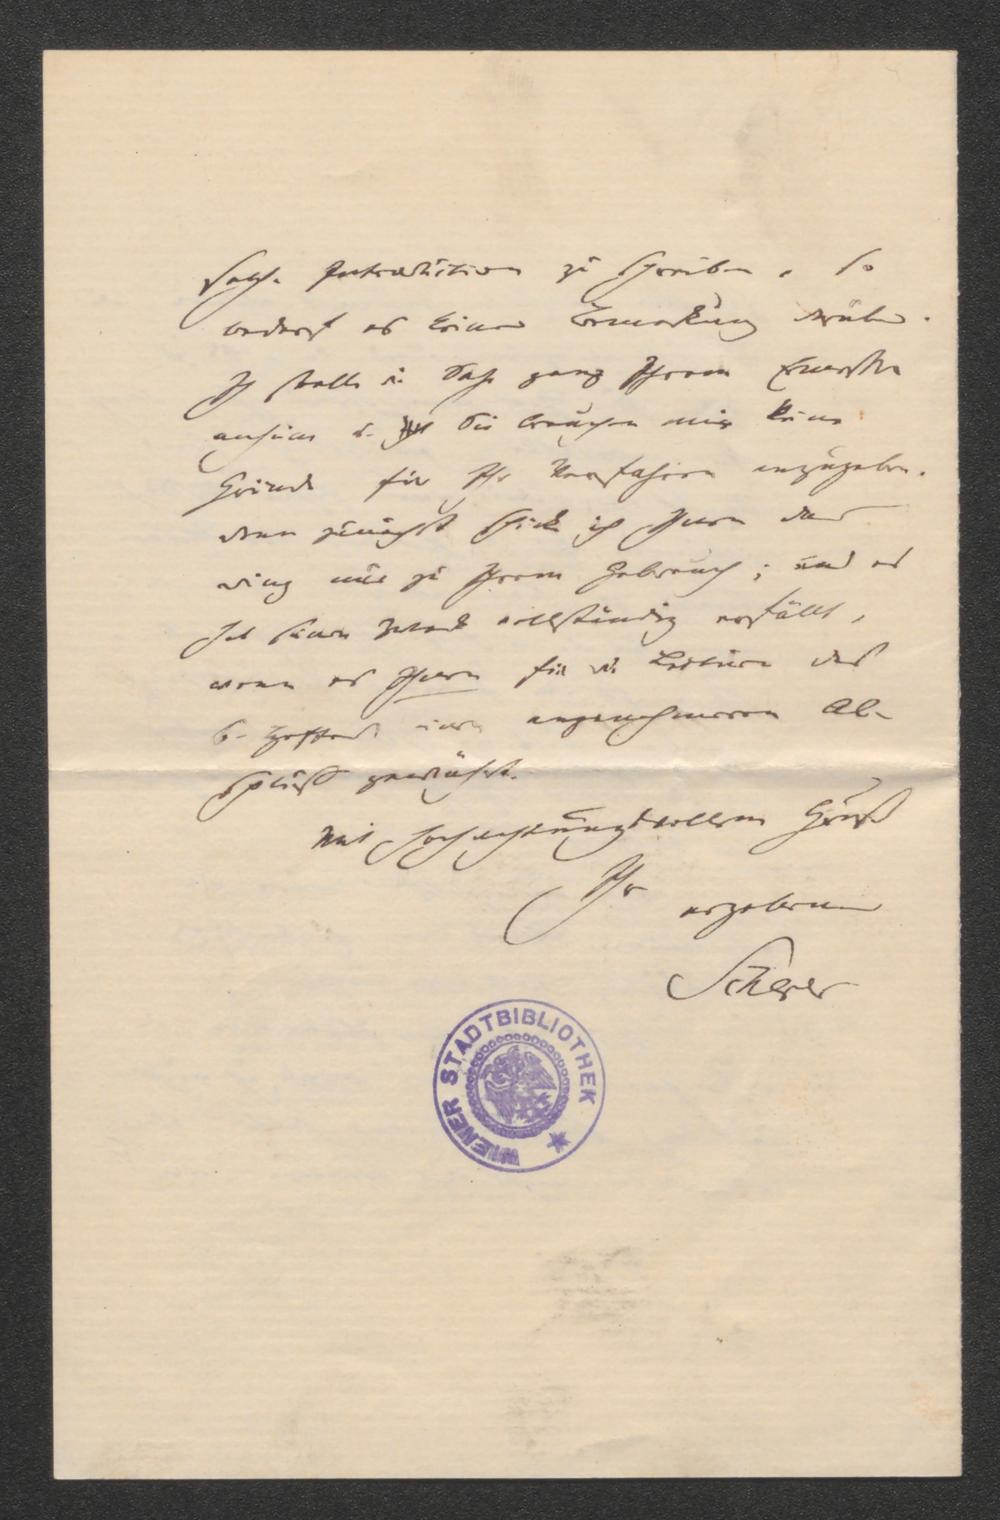 solche Introduction zu schreiben, so
bedarf es keiner Bemerkung darüber.
Ich stelle die Sache ganz Ihrem Ermessen
anheim u. Sie brauchen mir keine
Gründe für Ihr Verfahren anzugeben.
denn zunächst schicke ich Ihnen das
Ding nur zu Ihrem Gebrauch; und es
hat seinen Zweck vollständig erfüllt,
wenn es Ihnen für die Lectüre des
einen angenehmeren Ab-
schluß gewährt.
Mit hochachtungsvollem Gruß
Ihr ergebener
Scherer
WIENER STADTBIBLIOTHEK